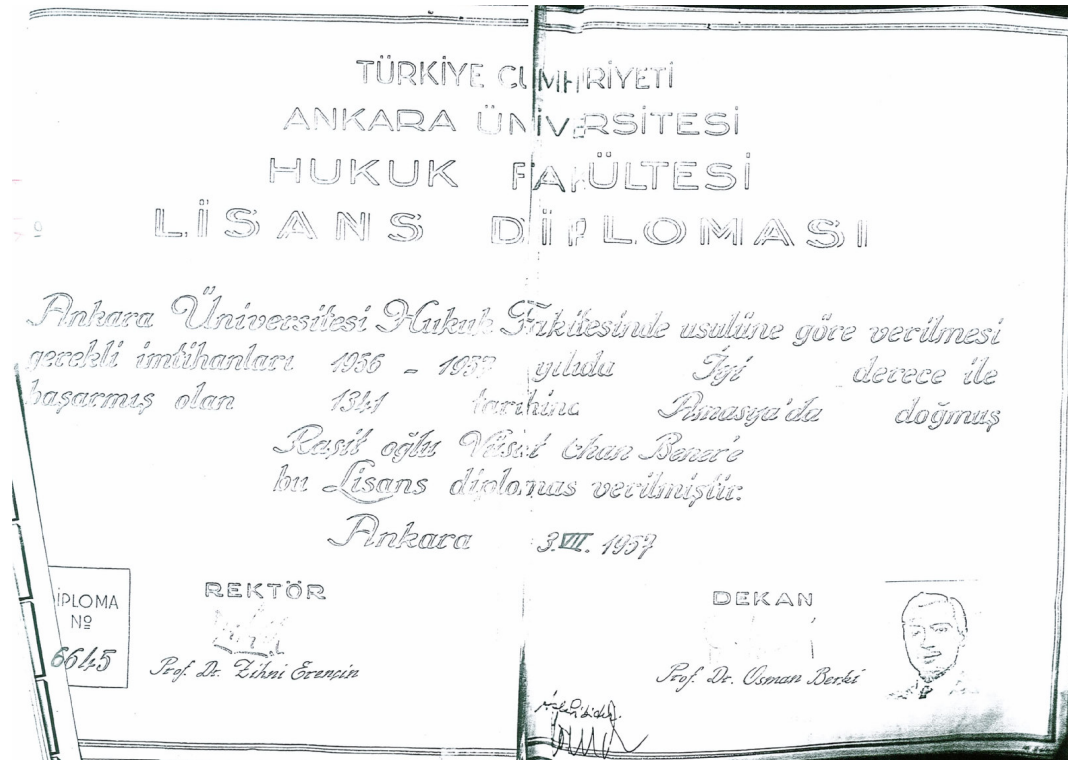 TÜRKİYE CUMHURİYETİ
ANKARA ÜNİVERSİTESİ
HUKUK FAKÜLTESİ
LİSANS DİPLOMASI
Ankara Üniversitesi Hukuk Fakültesinde usulüne göre verilmesi
gerekli imtihanları 1956 - 1957 yılında İyi derece ile
başarmış olan 1341 tarihinde Amasya'da doğmuş
Raşit oğlu Bener'e
bu Lisans diploması verilmiştir.
Ankara 3.VII.1957
DİPLOMA
Nº
6645
REKTÖR
Prof. Dr. Zihni Erençin
DEKAN
Prof. Dr. Osman Berki